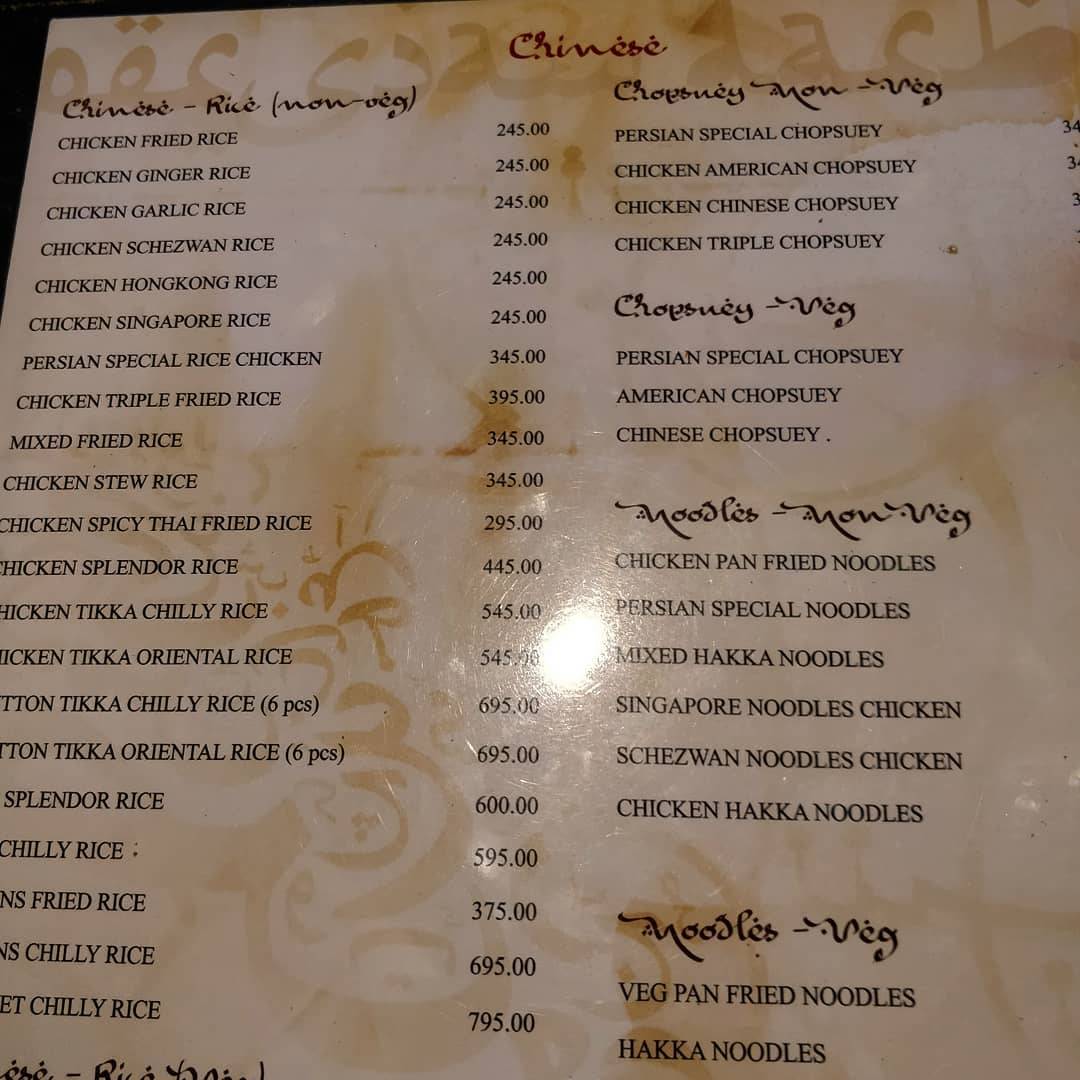 Chinese
Chinese - Rice (non-veg)
CHICKEN FRIED RICE 245.00
CHICKEN GINGER RICE 245.00
CHICKEN GARLIC RICE 245.00
CHICKEN SCHEZWAN RICE 245.00
CHICKEN HONGKONG RICE 245.00
CHICKEN SINGAPORE RICE 245.00
PERSIAN SPECIAL RICE CHICKEN 345.00
CHICKEN TRIPLE FRIED RICE 395.00
MIXED FRIED RICE 345.00
CHICKEN STEW RICE 345.00
CHICKEN SPICY THAI FRIED RICE 295.00
HICKEN SPLENDOR RICE 445.00
HICKEN TIKKA CHILLY RICE 545.00
ICKEN TIKKA ORIENTAL RICE 545.00
TTON TIKKA CHILLY RICE (6 pcs) 695.00
TTON TIKKA ORIENTAL RICE (6 pcs) 695.00
SPLENDOR RICE 600.00
CHILLY RICE : 595.00
NS FRIED RICE 375.00
NS CHILLY RICE 695.00
ET CHILLY RICE 795.00
Chopsuey Non - Veg
PERSIAN SPECIAL CHOPSUEY 34
CHICKEN AMERICAN CHOPSUEY 34
CHICKEN CHINESE CHOPSUEY 3
CHICKEN TRIPLE CHOPSUEY
Chopsuey - Veg
PERSIAN SPECIAL CHOPSUEY
AMERICAN CHOPSUEY
CHINESE CHOPSUEY .
Noodles - Non Veg
CHICKEN PAN FRIED NOODLES
PERSIAN SPECIAL NOODLES
MIXED HAKKA NOODLES
SINGAPORE NOODLES CHICKEN
SCHEZWAN NOODLES CHICKEN
CHICKEN HAKKA NOODLES
Noodles - Veg
VEG PAN FRIED NOODLES
HAKKA NOODLES